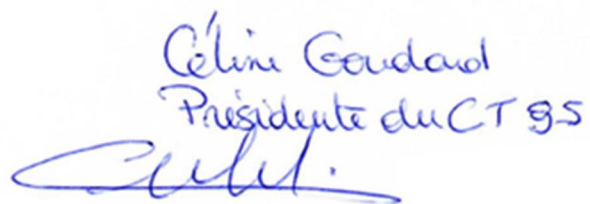 Céline Goudard
Présidente du CT 95